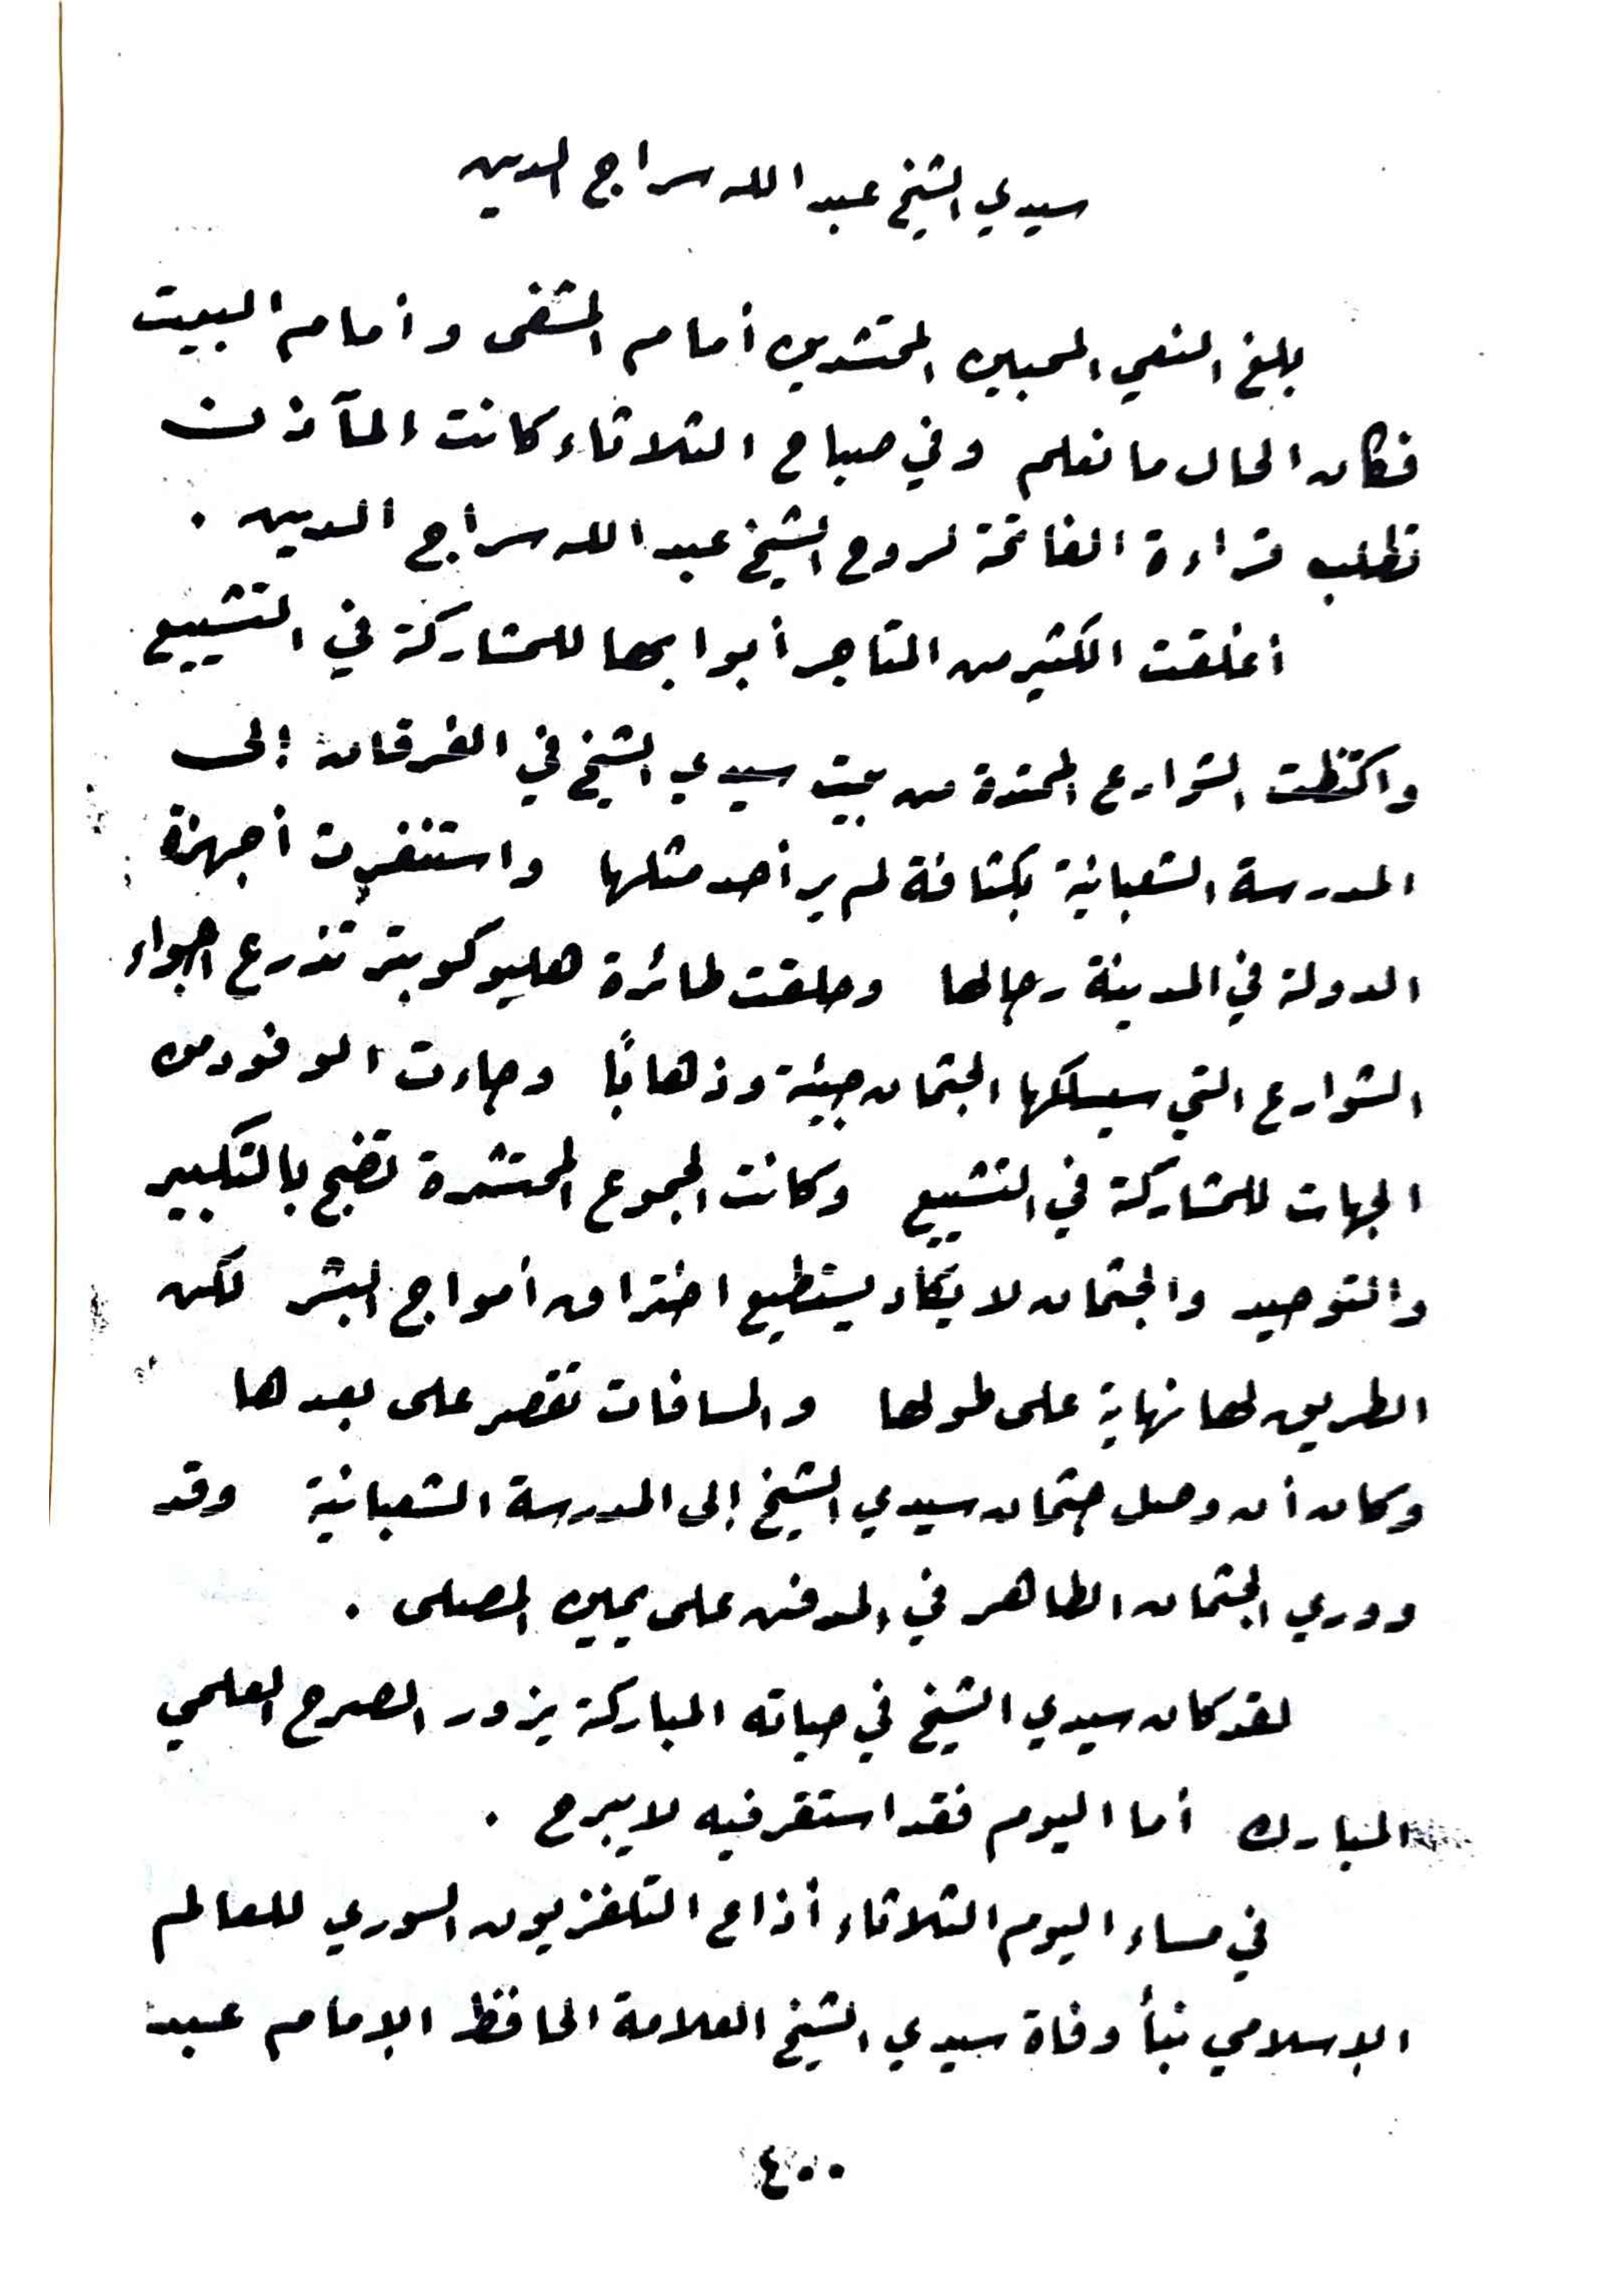 سيدي الشيخ عبد الله سراج الدين
بلغ النعي المحبين المحتشدين أمام المشفى وأمام البيت
فكان الحال ما نعلم وفي صباح الثلاثاء كانت المآذن
تطلب قراءة الفاتحة لروح الشيخ عبد الله سراج الدين .
أغلقت الكثير من المتاجر أبوابها للمشاركة في التشييع
واكتظت الشوارع الممتدة من بيت سيدي الشيخ في الفرقان إلى
المدرسة الشعبانية بكثافة لم ير أحد مثلها واستنفرت أجهزة
الدولة في المدينة رجالها وحلقت طائرة هليوكوبتر تذرع أجواء
الشوارع التي سيسلكها الجثمان جيئة وذهابًا وجاءت الوفود من
الجهات للمشاركة في التشييع وكانت الجموع المحتشدة تضج بالتكبير
والتوحيد والجثمان لا يكاد يستطيع اختراق أمواج البشر لكن
الطريق لها نهاية على طولها والمسافات تقصر على بعدها
وكان أن وصل جثمان سيدي الشيخ إلى المدرسة الشعبانية وقد
ووري الجثمان الطاهر في المدفن على يمين المصلى .
لقد كان سيدي الشيخ في حياته المباركة يزور الصرح العلمي
المبارك أما اليوم فقد استقر فيه لا يبرح .
في مساء اليوم الثلاثاء أذاع التلفزيون السوري للعالم
الإسلامي نبأ وفاة سيدي الشيخ العلامة الحافظ الإمام عبد
٤٠٠